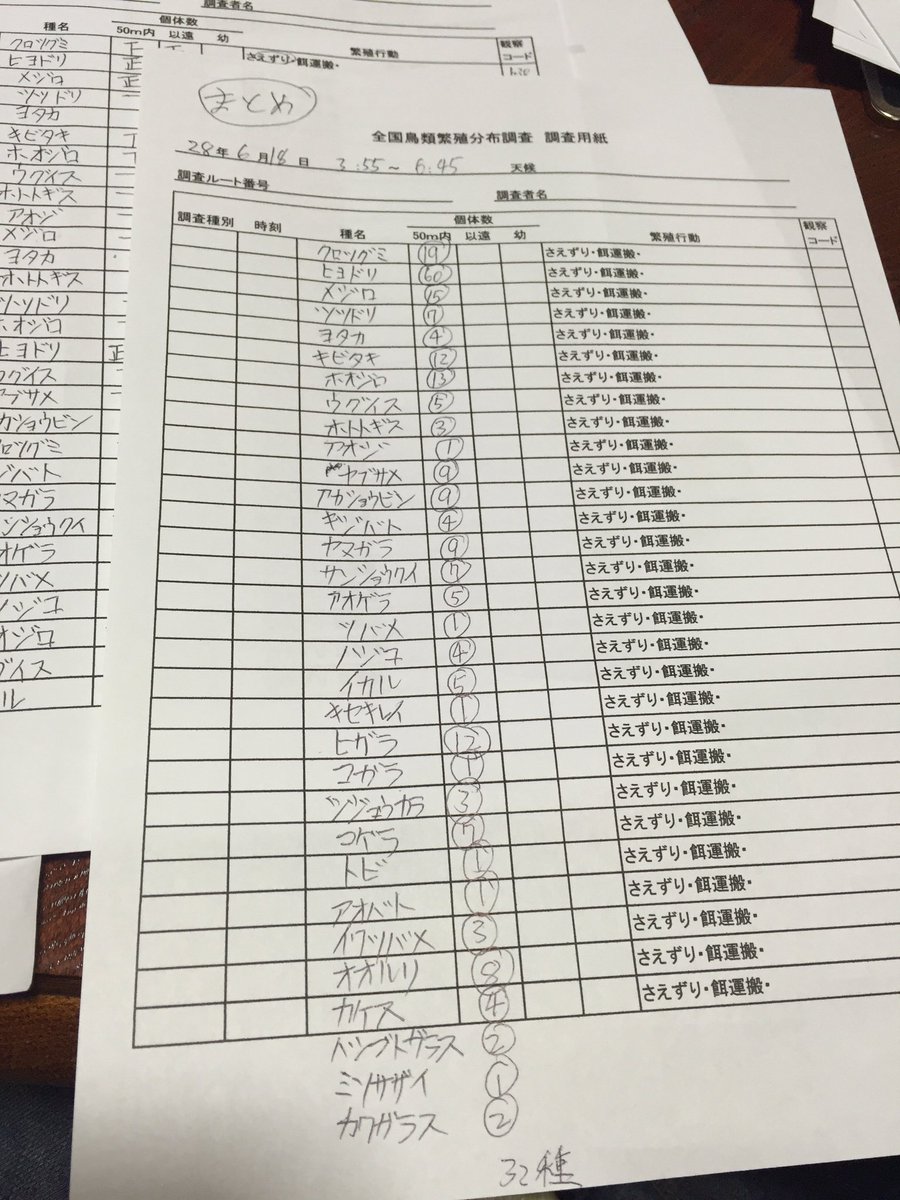 調査者名
種名 個体数 50m内 以遠 幼 繁殖行動 観察コード
クロツグミ さえずり・餌運搬・
ヒヨドリ 正
メジロ 正
ツツドリ
ヨタカ
キビタキ
ホオジロ
ウグイス
ホトトギス
アオジ
メジロ
ヨタカ
ホトトギス
ツツドリ
ホオジロ
ヒヨドリ 正
ウグイス
ブサメ
カショウビン
ロツグミ
ジバト
マガラ
ンショウクイ
オゲラ
ツバメ
ノジコ
オジロ
グイス
ル
まとめ
全国鳥類繁殖分布調査 調査用紙
28年6月18日 3:55〜6:45 天候
調査ルート番号 調査者名
調査種別 時刻 種名 個体数 50m内 以遠 幼 繁殖行動 観察コード
クロツグミ 19 さえずり・餌運搬・
ヒヨドリ 60 さえずり・餌運搬・
メジロ 15 さえずり・餌運搬・
ツツドリ 7 さえずり・餌運搬・
ヨタカ 4 さえずり・餌運搬・
キビタキ 12 さえずり・餌運搬・
ホオジロ 13 さえずり・餌運搬・
ウグイス 5 さえずり・餌運搬・
ホトトギス 3 さえずり・餌運搬・
アオジ 1 さえずり・餌運搬・
ヤブサメ 9 さえずり・餌運搬・
アカショウビン 9 さえずり・餌運搬・
キジバト 4 さえずり・餌運搬・
ヤマガラ 9 さえずり・餌運搬・
サンショウクイ 7 さえずり・餌運搬・
アオゲラ 5 さえずり・餌運搬・
ツバメ 1 さえずり・餌運搬・
ノジコ 4 さえずり・餌運搬・
イカル 5 さえずり・餌運搬・
キセキレイ 1 さえずり・餌運搬・
ヒガラ 12 さえずり・餌運搬・
コガラ 1 さえずり・餌運搬・
シジュウカラ 3 さえずり・餌運搬・
コゲラ 7 さえずり・餌運搬・
トビ 1 さえずり・餌運搬・
アオバト 1 さえずり・餌運搬・
イワツバメ 3 さえずり・餌運搬・
オオルリ 8 さえずり・餌運搬・
カケス 4 さえずり・餌運搬・
ハシブトガラス 2
ミソサザイ 1
カワガラス 2
32種